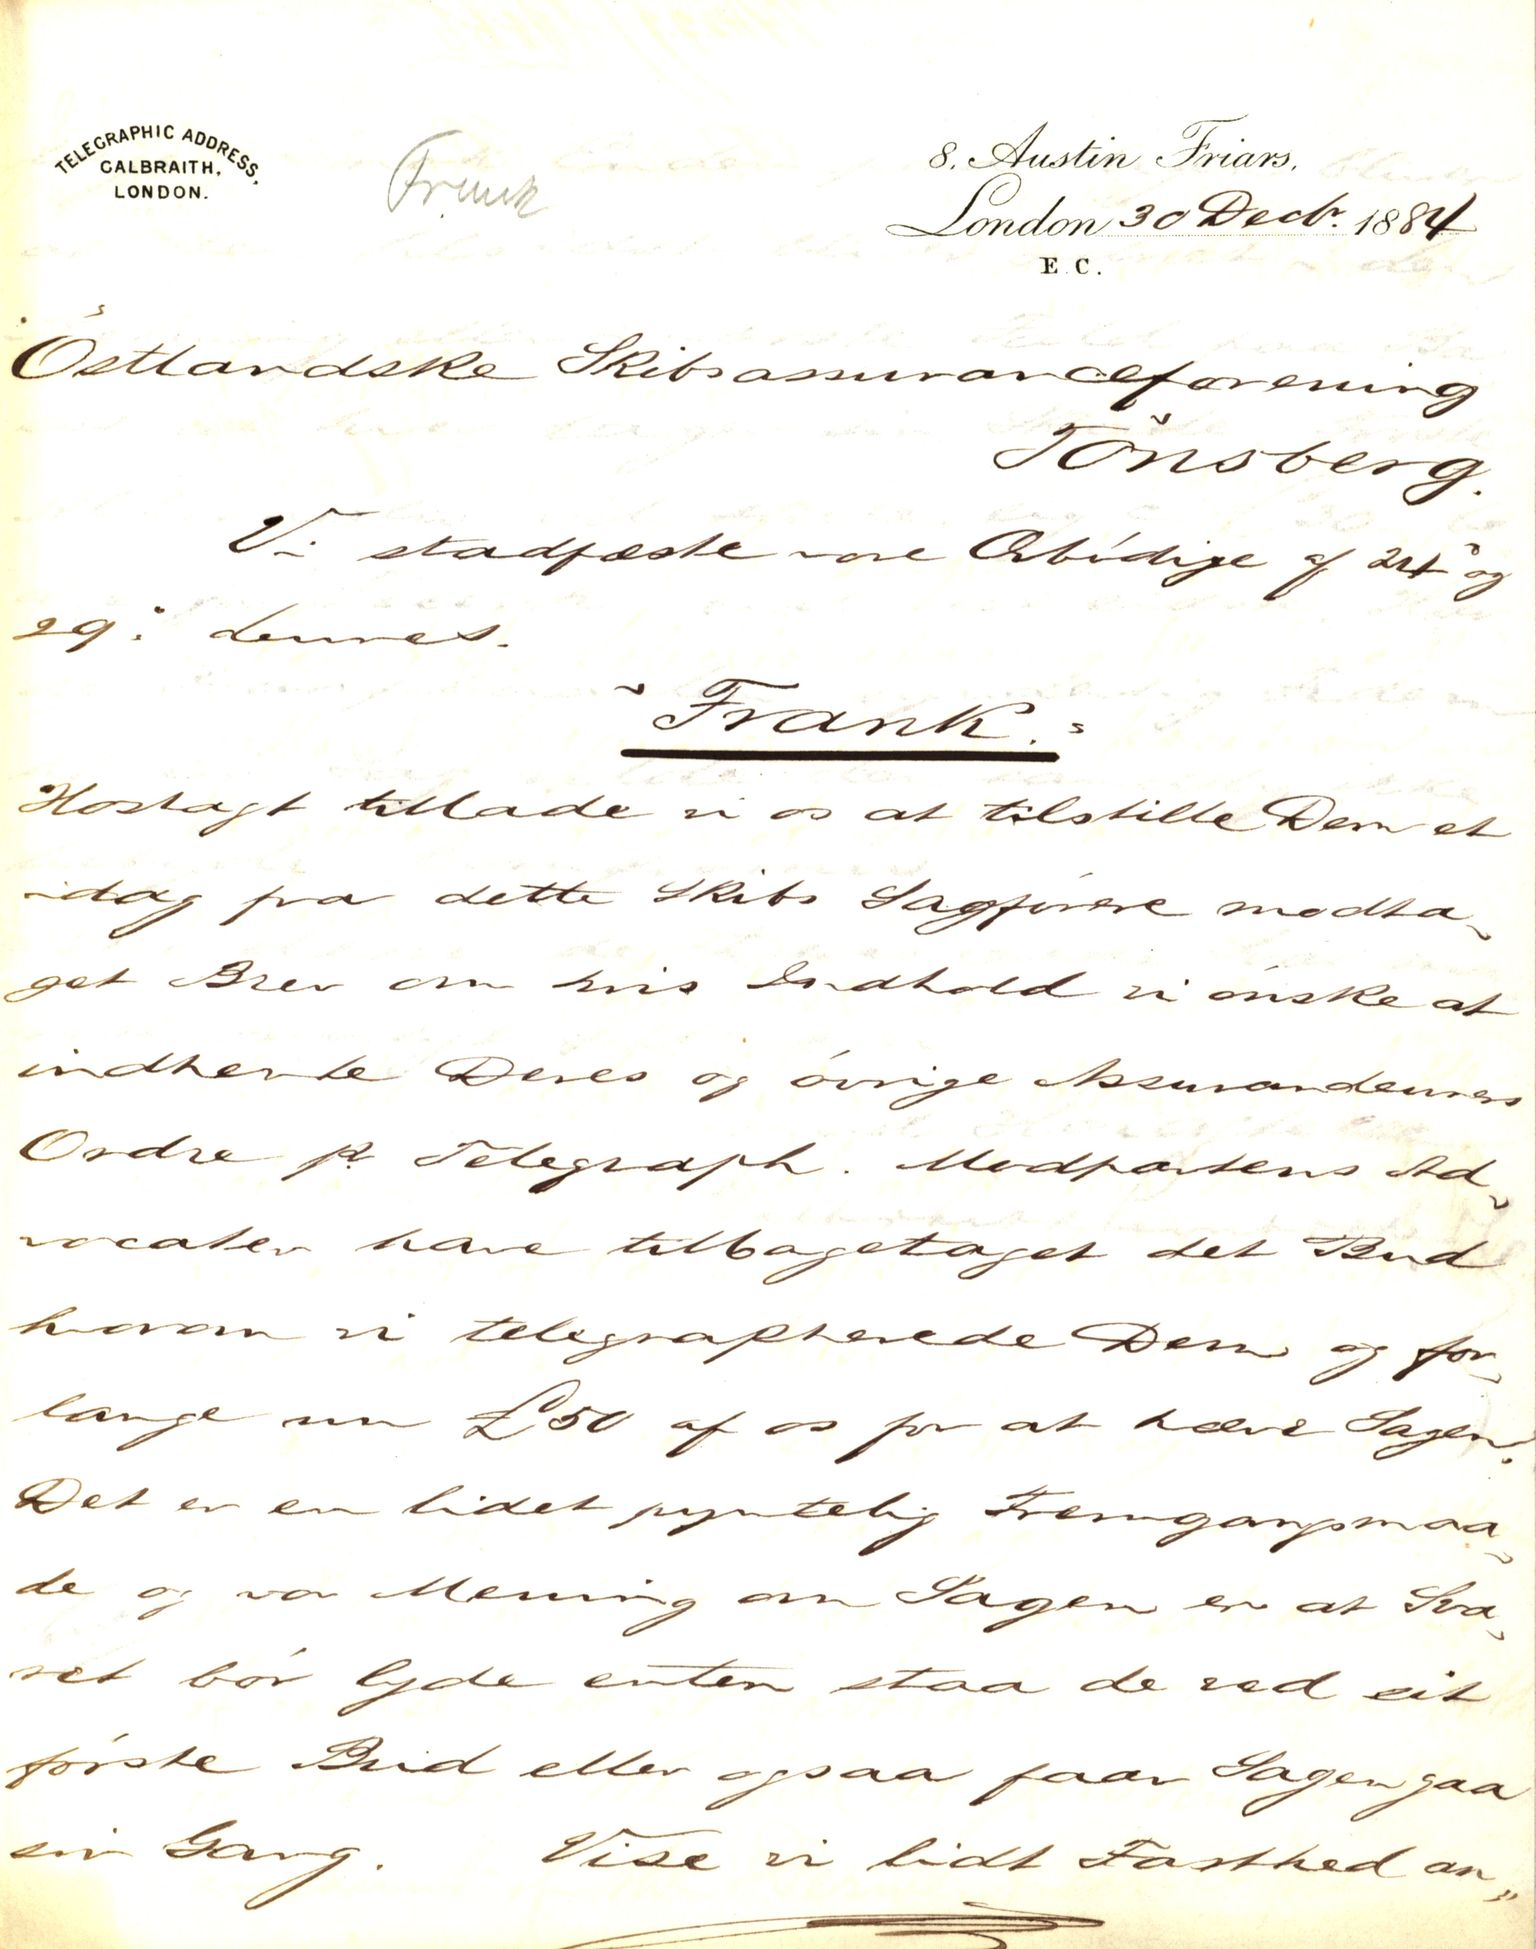 TELEGRAPHIC ADDRESS,
GALBRAITH,
LONDON.
Frank
8, Austin Friars,
London 30 Decbr. 1884
E.C.
Östlandske Skibsassuranceforening
Tönsberg.
Vi stadfæste vore Ærbödige af 24 og
29: dennes.
"Frank."
Hoslagt tillade vi os at tilstille Dem et
idag fra dette Skibs Sagförere modta„
get Brev om hvis Indhold vi önske at
indhente Deres og övrige Assurandeurers
Ordre pr Telegraph. Modpartens Ad„
vocater have tilbagetaget det Bud
hvorom vi telegrapherede Dem og for„
lange nu £50 af os for at hæve Sagen.
Det er en lidet pyntelig Fremgangsmaa„
de og vor Mening om Sagen er at Sva„
ret bör lyde enten staa de ved sit
förste Bud eller ogsaa faar Sagen gaa
sin Gang. Vise vi lidt Fasthed an„